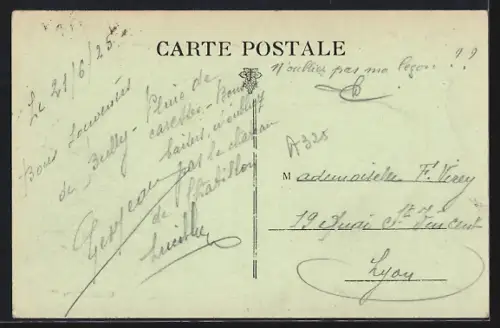 CARTE POSTALE
N'oubliez pas ma leçon !!
Le 21/6/25
Bons souvenirs
de Bully - Pluie de
caresses - Bons
baisers n'oubliez
pas le château
de Chatillon
A325
Mademoiselle F. Verey
19 Quai St Vincent
Lyon